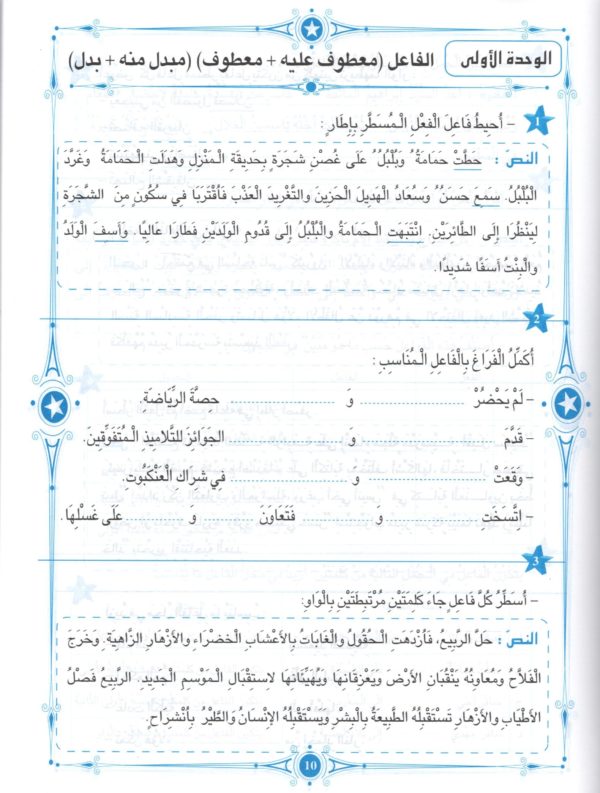 الوحدة الأولى
الفاعل (معطوف عليه + معطوف) (مبدل منه + بدل)
1
- أُحِيطُ فَاعِلَ الْفِعْلِ الْمُسَطَّرِ بِإِطَارٍ :
النص : حَطَّتْ حَمَامَةٌ وَبُلْبُلٌ عَلَى غُصْنِ شَجَرَةٍ بِحَدِيقَةِ الْمَنْزِلِ وَهَدَلَتْ الْحَمَامَةُ وَغَرَّدَ
الْبُلْبُلُ. سَمِعَ حَسَنٌ وَسُعَادُ الْهَدِيلَ الْحَزِينَ وَالتَّغْرِيدَ الْعَذْبَ فَاقْتَرَبَا فِي سُكُونٍ مِنَ الشَّجَرَةِ
لِيَنْظُرَا إِلَى الطَّائِرَيْنِ. انْتَبَهَتِ الْحَمَامَةُ وَالْبُلْبُلُ إِلَى قُدُومِ الْوَلَدَيْنِ فَطَارَا عَالِيًا. وَأَسِفَ الْوَلَدُ
وَالْبِنْتُ أَسَفًا شَدِيدًا.
2
أُكَمِّلُ الْفَرَاغَ بِالْفَاعِلِ الْمُنَاسِبِ :
- لَمْ يَحْضُرْ .................... وَ .................... حِصَّةَ الرِّيَاضَةِ.
- قَدَّمَ .................... وَ .................... الْجَوَائِزَ لِلتَّلَامِيذِ الْمُتَفَوِّقِينَ.
- وَقَعَتْ .................... وَ .................... فِي شِرَاكِ الْعَنْكَبُوتِ.
- اِتَّسَخَتِ .................... وَ .................... فَتَعَاوَنَ .................... وَ .................... عَلَى غَسْلِهَا.
3
- أُسَطِّرُ كُلَّ فَاعِلٍ جَاءَ كَلِمَتَيْنِ مُرْتَبِطَتَيْنِ بِالْوَاوِ:
النص : حَلَّ الرَّبِيعُ، فَازْدَهَتِ الْحُقُولُ وَالْغَابَاتُ بِالْأَعْشَابِ الْخَضْرَاءِ وَالْأَزْهَارِ الزَّاهِيَةِ. وَخَرَجَ
الْفَلَّاحُ وَمُعَاوِنُهُ يَنْقُبَانِ الْأَرْضَ وَيَعْزِقَانِهَا وَيُهَيِّئَانِهَا لِاسْتِقْبَالِ الْمَوْسِمِ الْجَدِيدِ. الرَّبِيعُ فَصْلُ
الْأَطْيَابِ وَالْأَزْهَارِ تَسْتَقْبِلُهُ الطَّبِيعَةُ بِالْبِشْرِ وَيَسْتَقْبِلُهُ الْإِنْسَانُ وَالطَّيْرُ بِانْشِرَاحٍ.
10